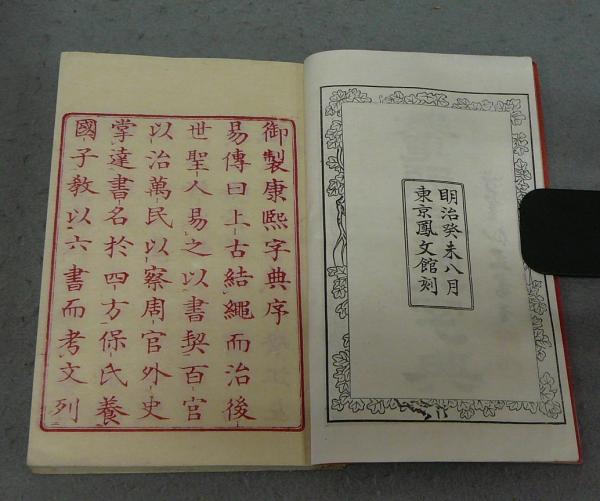 明治癸未八月
東京鳳文館刻
御製康熙字典序
易傳曰上古結繩而治後
世聖人易之以書契百官
以治萬民以察周官外史
掌達書名於四方保氏養
國子教以六書而考文列